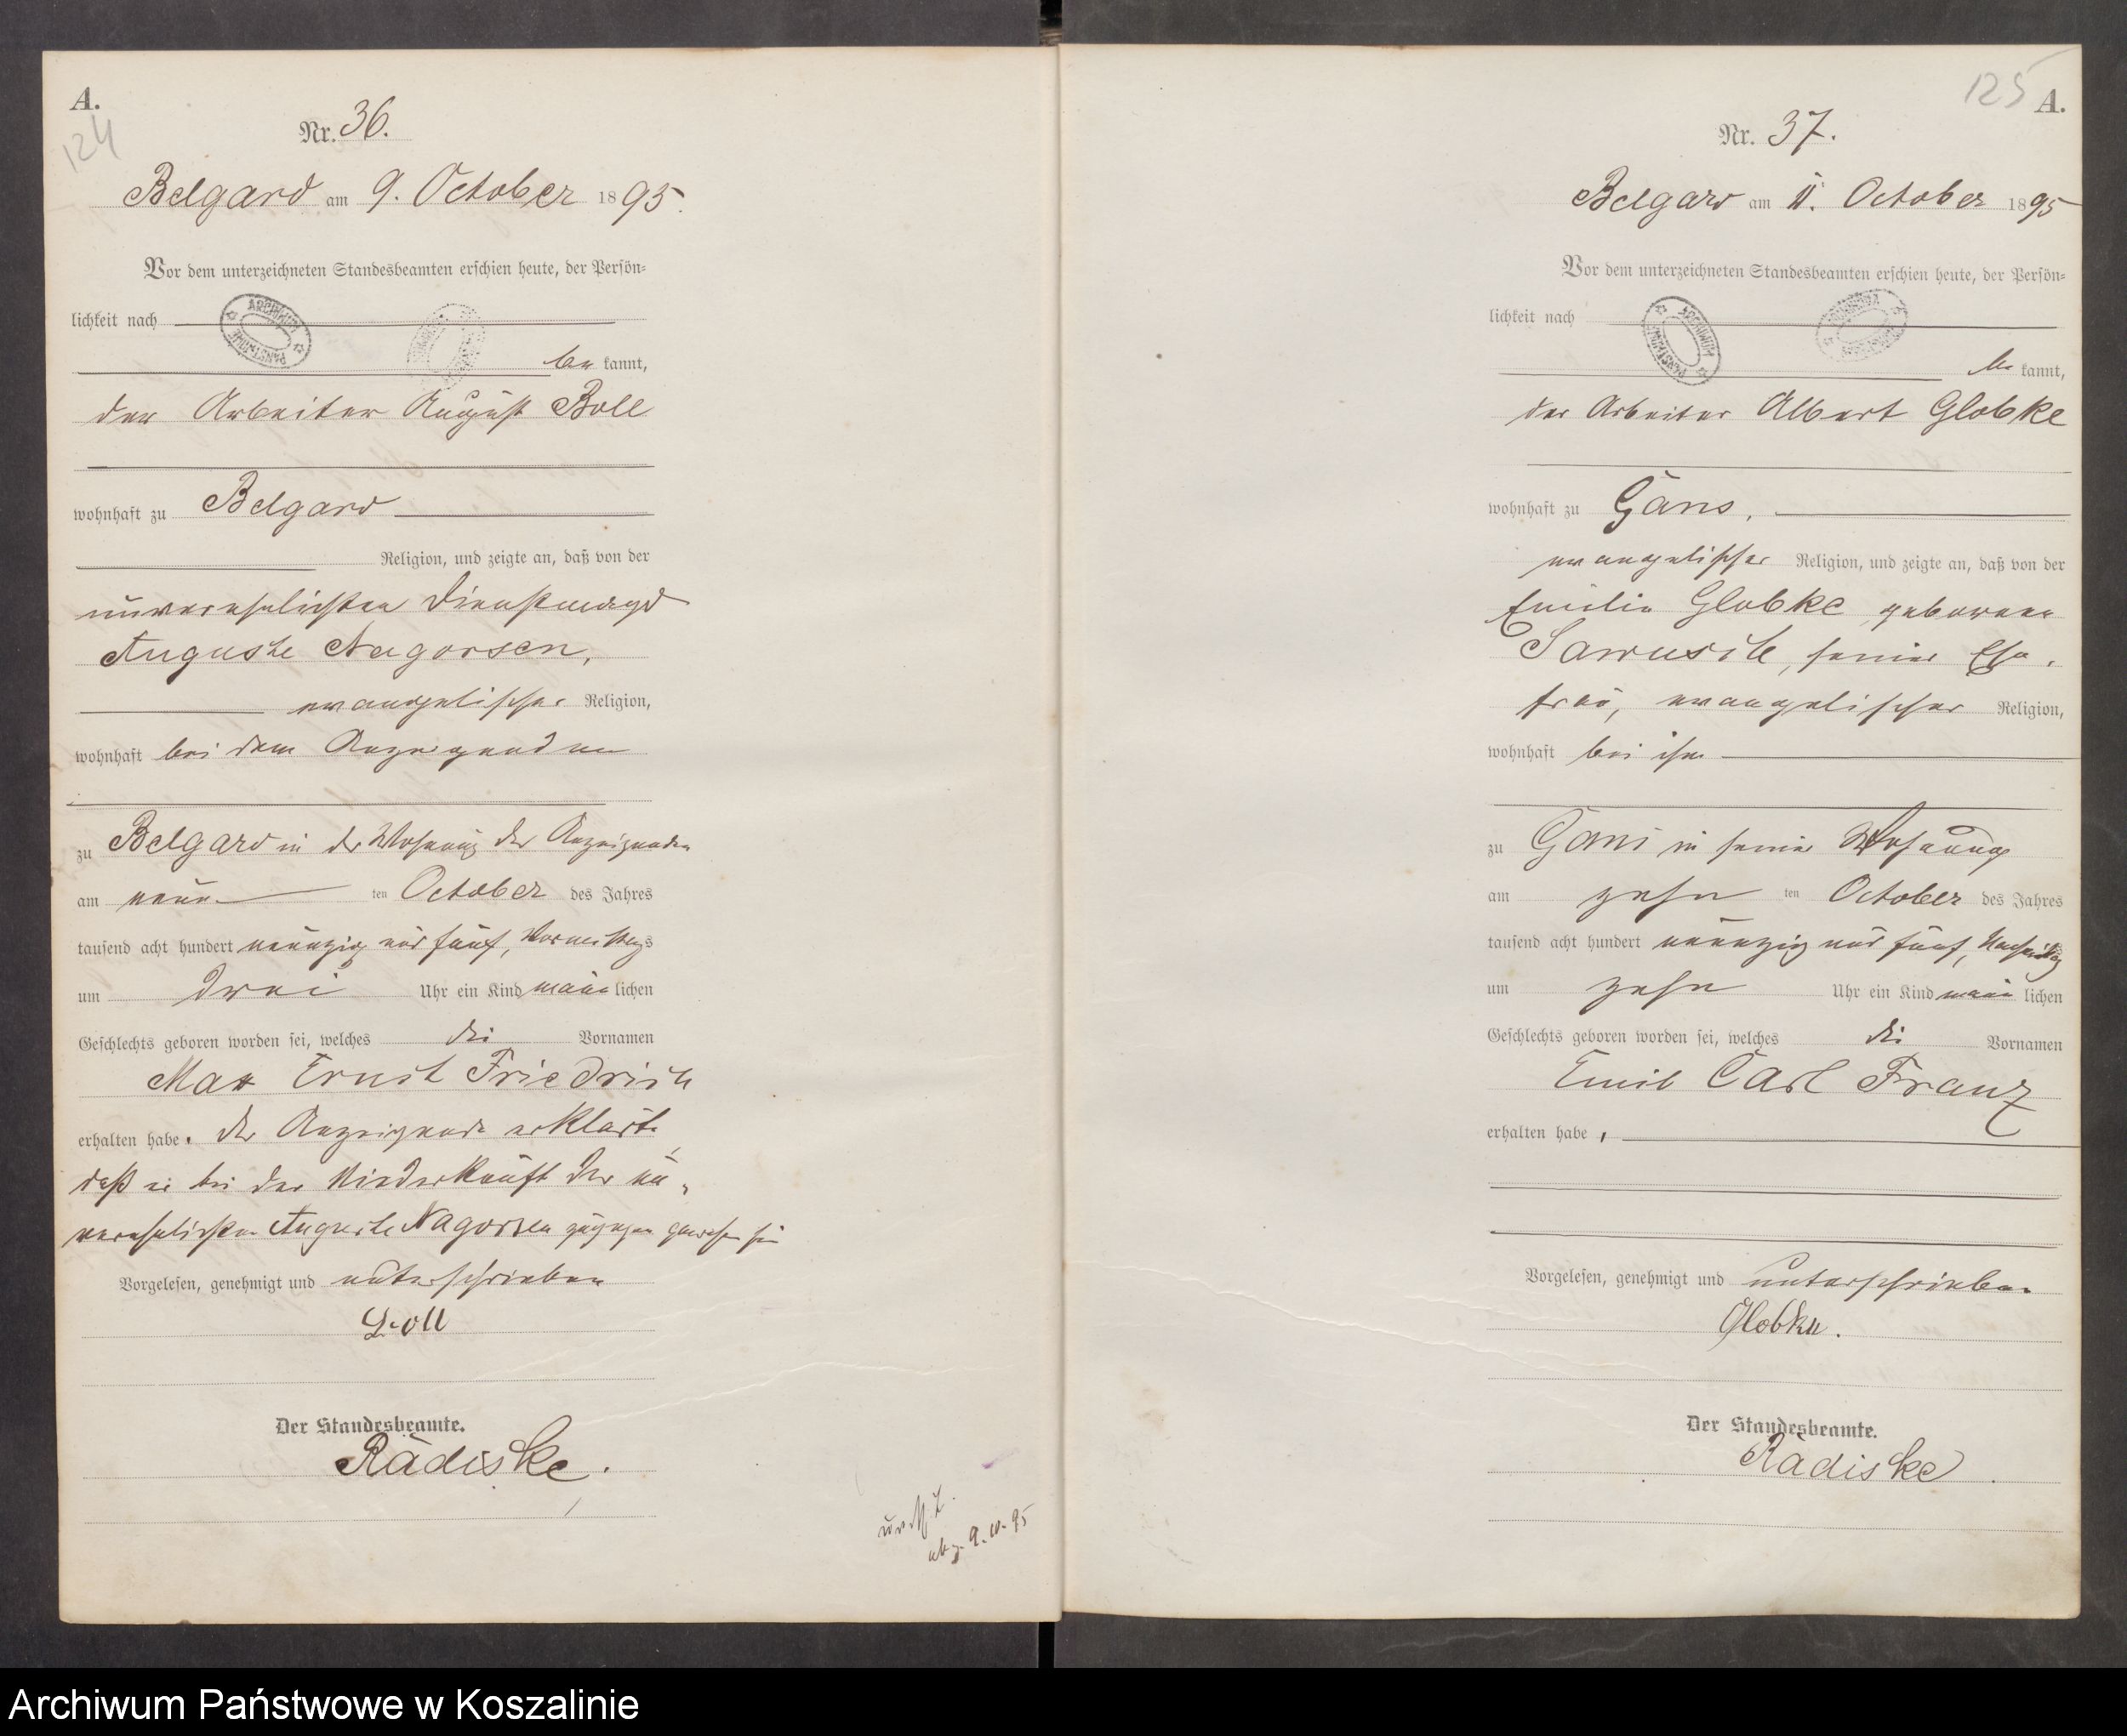 A.
124
Nr. 36.
Belgard am 9. October 1895.
Vor dem unterzeichneten Standesbeamten erschien heute, der Persön=
lichkeit nach
be kannt,
der Arbeiter August Boll
wohnhaft zu Belgard
Religion, und zeigte an, daß von der
unverehelichten Dienstmagd
Auguste Nagorsen,
evangelischer Religion,
wohnhaft bei dem Anzeigenden
zu Belgard in der Wohnung des Anzeigenden
am neun ten October des Jahres
tausend acht hundert neunzig und fünf, Vormittags
um drei Uhr ein Kind männ lichen
Geschlechts geboren worden sei, welches die Vornamen
Max Ernst Friedrich
erhalten habe. Der Anzeigende erklärte,
daß er bei der Niederkunft der un-
verehelichten Auguste Nagorsen zugegen gewesen sei
Vorgelesen, genehmigt und unterschrieben
Boll
Der Standesbeamte.
Rädiske.
9.10.95
125
A.
Nr. 37.
Belgard am 11. October 1895
Vor dem unterzeichneten Standesbeamten erschien heute, der Persön=
lichkeit nach
be kannt,
der Arbeiter Albert Globke
wohnhaft zu Gans,
evangelischer Religion, und zeigte an, daß von der
Emilie Globke geborene
seiner Ehe-
frau, evangelischer Religion,
wohnhaft bei ihm
zu Gans in seiner Wohnung
am zehn ten October des Jahres
tausend acht hundert neunzig und fünf, Nachmittags
um zehn Uhr ein Kind männ lichen
Geschlechts geboren worden sei, welches die Vornamen
Emil Carl Franz
erhalten habe,
Vorgelesen, genehmigt und unterschrieben
Globke.
Der Standesbeamte.
Rädiske
Archiwum Państwowe w Koszalinie